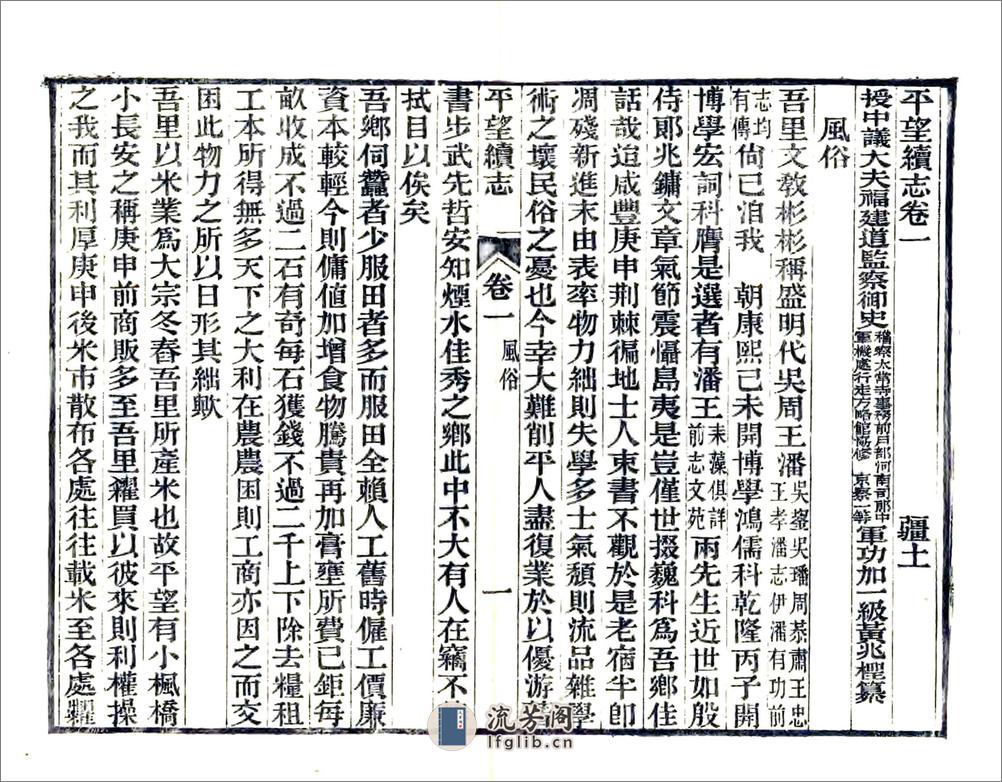 平望續志卷一　疆土
授中議大夫福建道監察御史稽察太常寺事務前戶部河南司郎中
軍機處行走方略館協修　京察一等軍功加一級黃兆檉纂
風俗
吾里文敎彬彬稱盛明代吳周王潘吳鋻吳璠周恭肅王忠
王孝潘志伊潘有功前
志均
有傳尙已洎我　朝康熙己未開博學鴻儒科乾隆丙子開
博學宏詞科膺是選者有潘王耒藻俱詳
前志文苑兩先生近世如殷
侍郞兆鏞文章氣節震懾島夷是豈僅世掇巍科爲吾鄉佳
話哉迨咸豐庚申荆棘徧地士人束書不觀於是老宿半卽
凋殘新進末由表率物力絀則失學多士氣頽則流品雜學
術之壞民俗之憂也今幸大難削平人盡復業於以優游
平望續志　卷一　風俗　一
書步武先哲安知煙水佳秀之鄉此中不大有人在竊不
拭目以俟矣
吾鄉伺蠶者少服田者多而服田全賴人工舊時僱工價廉
資本較輕今則傭値加增食物騰貴再加膏壅所費已鉅每
畝收成不過二石有奇每石獲錢不過二千上下除去糧租
工本所得無多天下之大利在農農困則工商亦因之而交
困此物力之所以日形其絀歟
吾里以米業爲大宗冬舂吾里所產米也故平望有小楓橋
小長安之稱庚申前商販多至吾里糴買以彼來則利權操
之我而其利厚庚申後米市散布各處往往載米至各處糶
流芳閣
lfglib.cn